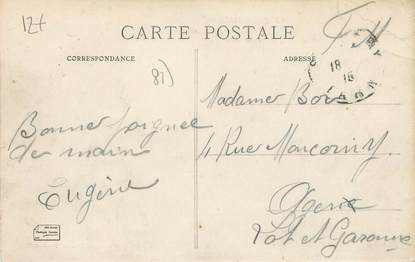 12t
F.M
CARTE POSTALE
CORRESPONDANCE
ADRESSE
18
18
81)
Madame
Bonne poignée
de main
4 Rue
Eugène
Agen
Lot et Garonne